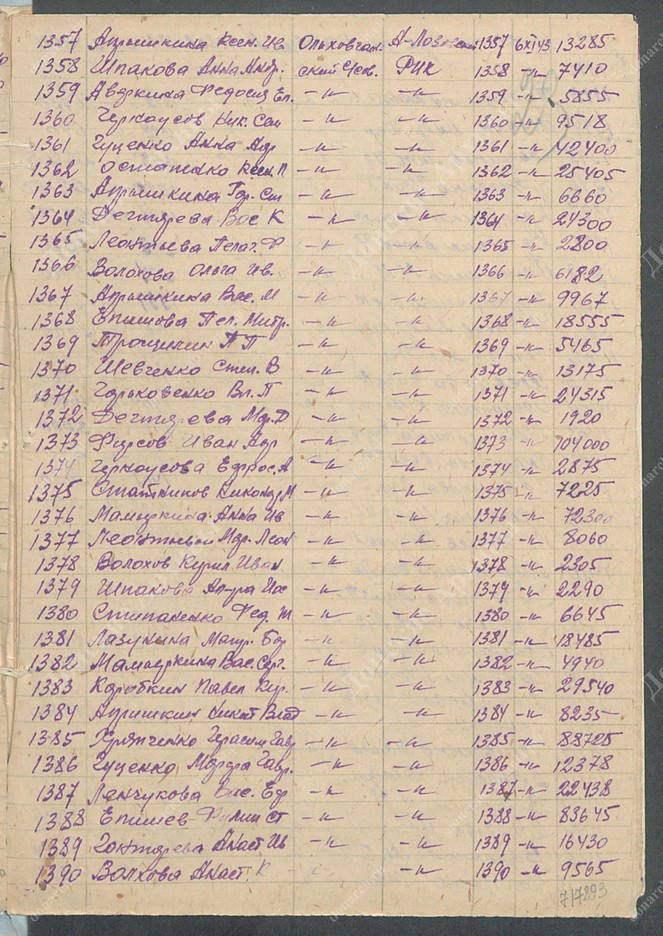 1357 Апрышкина Ксен. Ив Ольховчан. А-Лозовский 1357 6XI43 13285
1358 Шпакова Анна Андр. ский с/сов. РИК 1358 -"- 7410
1359 Авдкина Федосия Ел. -"- -"- 1359 -"- 5855
1360 Черкоусов Ник. Сем -"- -"- 1360 -"- 9518
1361 Гуценко Анна Адр -"- -"- 1361 -"- 42400
1362 Остапенко Ксен П -"- -"- 1362 -"- 25405
1363 Апрышкина -"- -"- 1363 -"- 6660
1364 Дегтярева Вас К -"- -"- 1364 -"- 24300
1365 Леонтьева Пелаг. Ф -"- -"- 1365 -"- 2800
1366 Волохова Ольга Ив. -"- -"- 1366 -"- 6182
1367 Апрышкина Вас. М -"- -"- 1367 -"- 9967
1368 Епишова Пел. Митр. -"- -"- 1368 -"- 18555
1369 П П -"- -"- 1369 -"- 5465
1370 Шевченко Степ. В -"- -"- 1370 -"- 13175
1371 Горьковенко Вл. П -"- -"- 1371 -"- 24315
1372 Дегтярева Мдр. Д -"- -"- 1372 -"- 1920
1373 Фирсов Иван Адр -"- -"- 1373 -"- 104000
1374 Черкоусова Ефрос. А -"- -"- 1374 -"- 2875
1375 Никонор М -"- -"- 1375 -"- 7225
1376 Анна Ив -"- -"- 1376 -"- 72300
1377 Мдр. Леон -"- -"- 1377 -"- 8060
1378 Волохов Кирил Иван -"- -"- 1378 -"- 2305
1379 Шпакова Ал-ра -"- -"- 1379 -"- 2290
1380 Степаненко Фед. Т -"- -"- 1380 -"- 6645
1381 Лазукина -"- -"- 1381 -"- 18485
1382 Вас. Серг. -"- -"- 1382 -"- 4940
1383 Коробкин Павел Кир. -"- -"- 1383 -"- 29540
1384 Апришкин -"- -"- 1384 -"- 8235
1385 Герасим Гавр -"- -"- 1385 -"- 88725
1386 Гуценко Гавр. -"- -"- 1386 -"- 12378
1387 Ленчукова Вас. Еф -"- -"- 1387 -"- 22438
1388 Епишев Филип Ст -"- -"- 1388 -"- 83645
1389 Анаст Ив -"- -"- 1389 -"- 16430
1390 Волхова Анаст. К -"- 1390 -"- 9565
717293